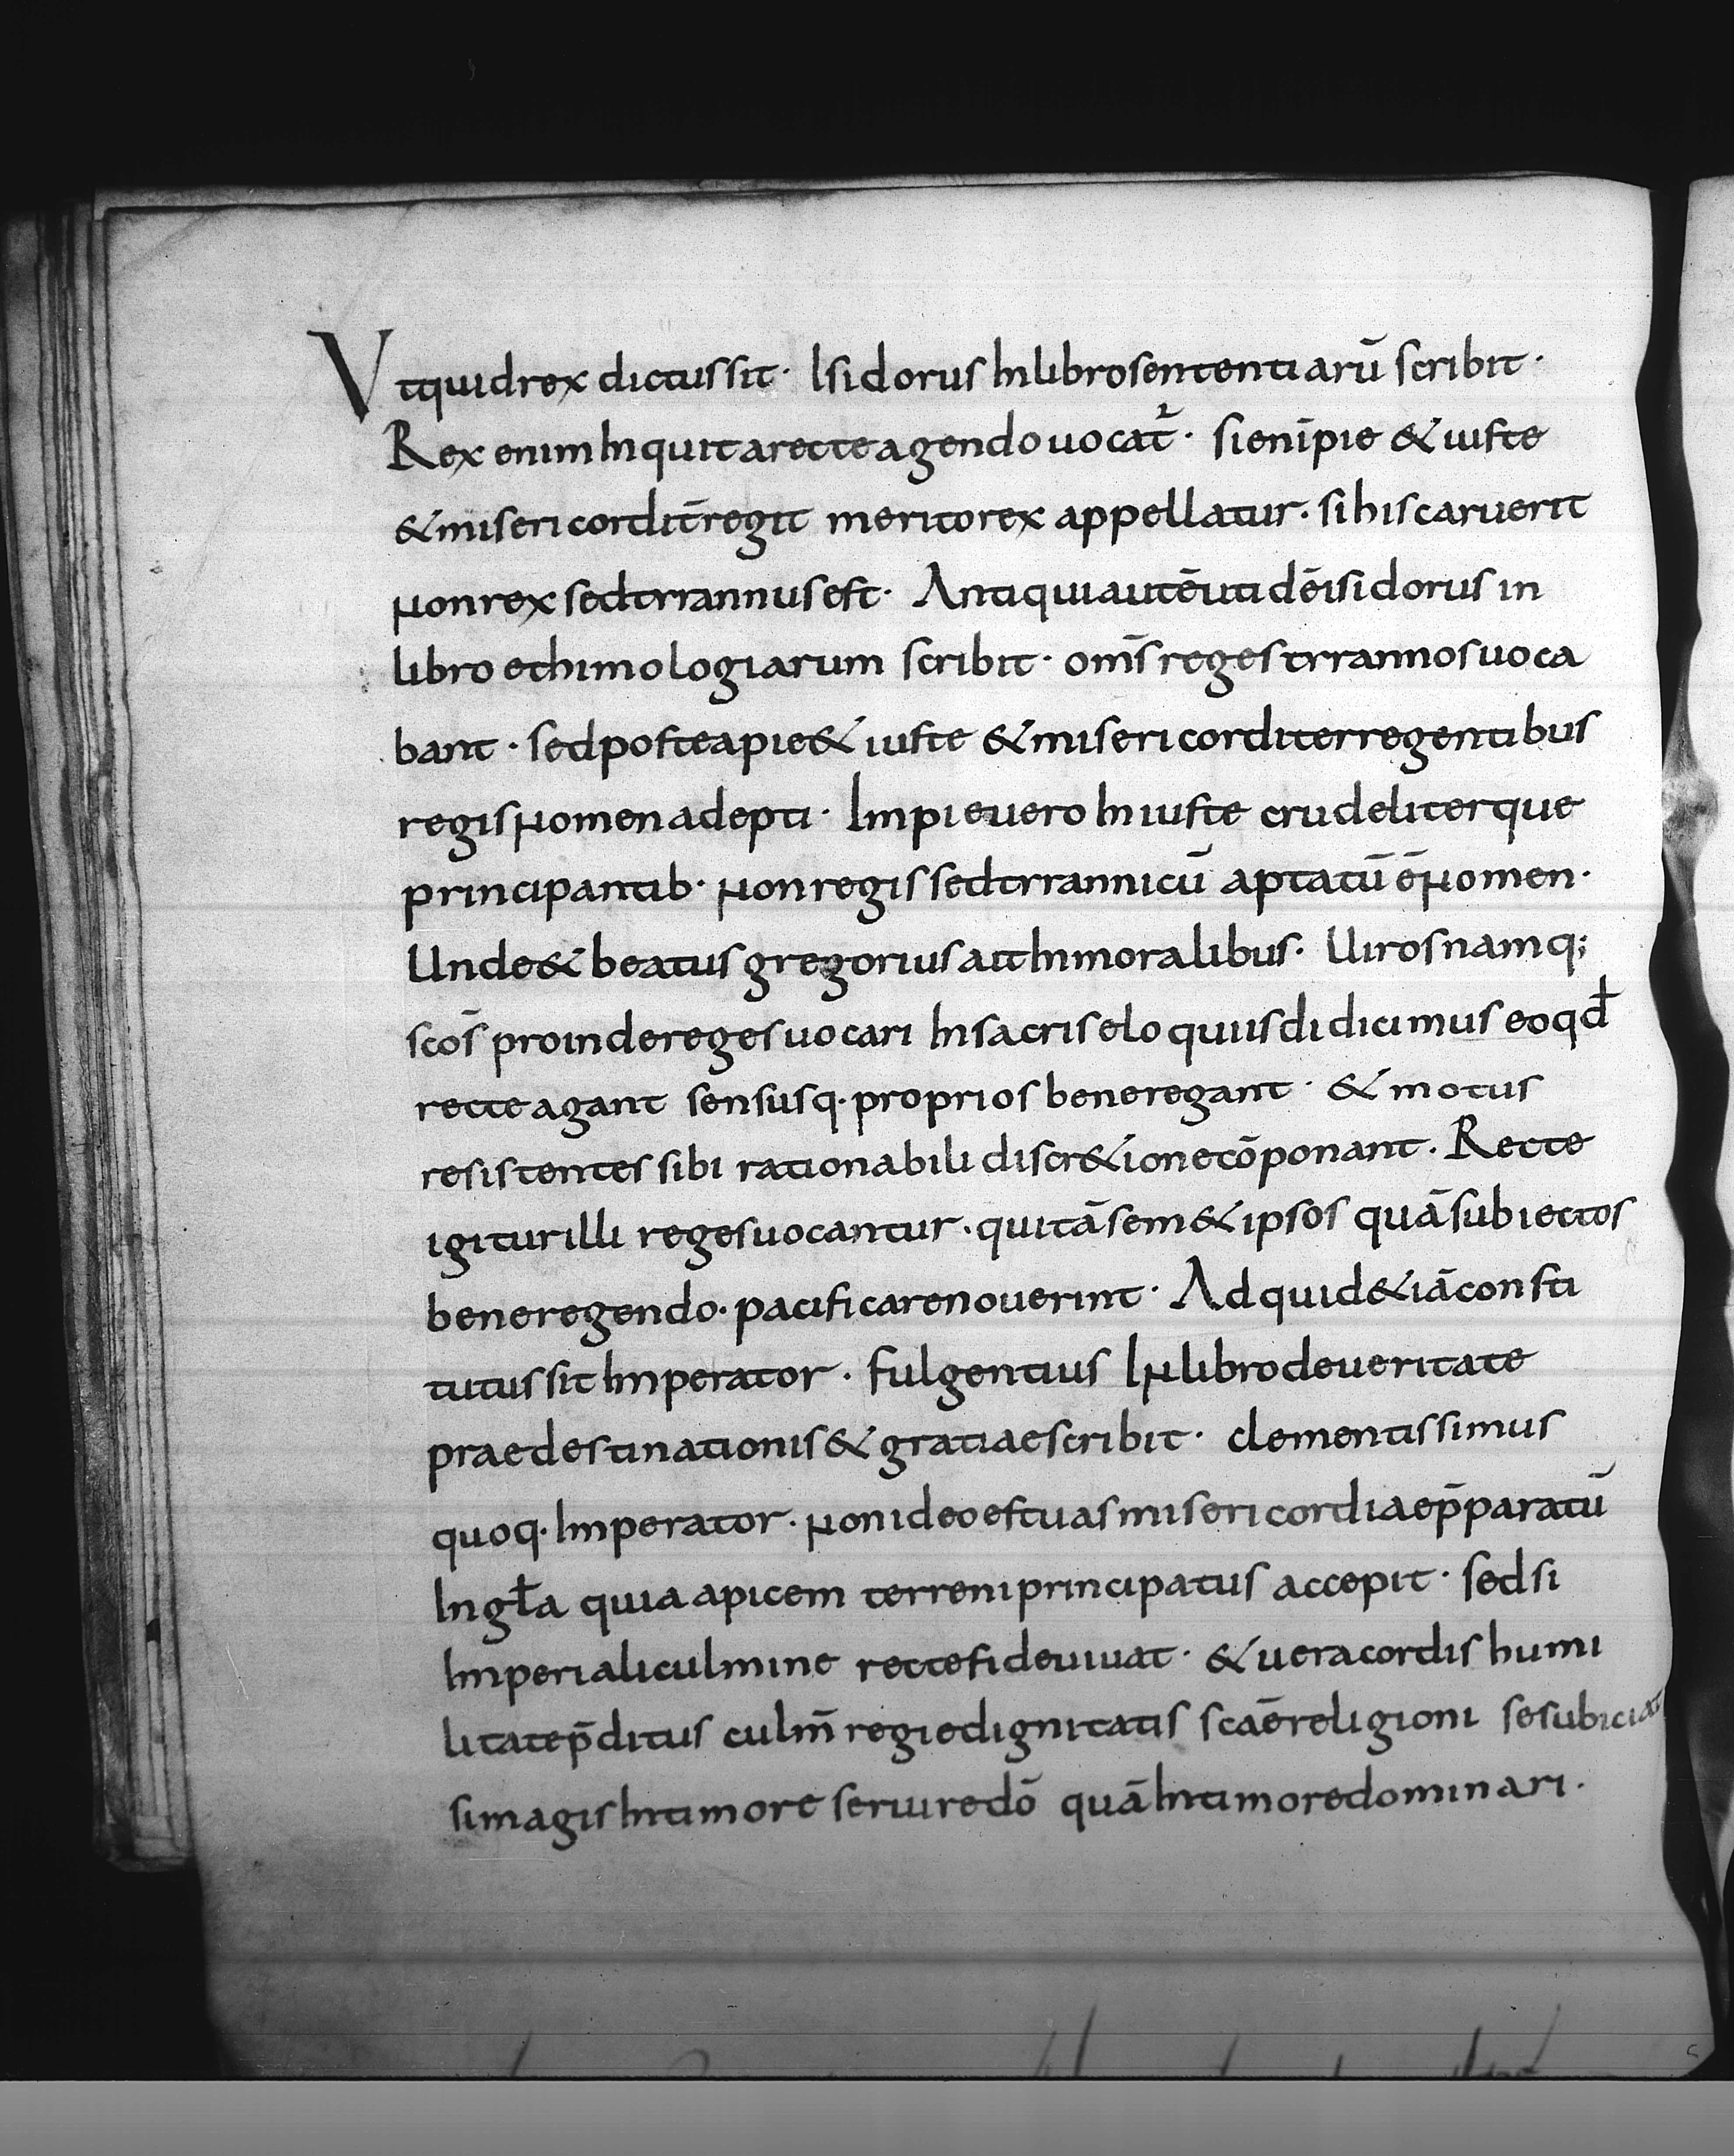 Vtquid rex dictus sit· Isidorus In libro sententiarū scribit·
Rex enim Inquit a recte agendo uocat̄· si enī pie & iuste
& misericordit̄ regit merito rex appellatur· si his caruerit
non rex sed tyrannus est· Antiqui autē ut idē isidorus in
libro ethimologiarum scribit· om̄s reges tyrannos uoca
bant· sed postea pie & iuste & misericorditer regentibus
regis nomen adepti· Impie uero Iniuste crudeliterque
principantib· non regis sed tyrannicū aptatū ē nomen·
Unde & beatus gregorius ait In moralibus· Uiros namq;
sc̄os proinde reges uocari In sacris eloquiis didicimus eo qd̄
recte agant sensusq· proprios bene regant· & motus
resistentes sibi rationabili discr&ione cōponant· Recte
igitur illi reges uocantur· qui tā sem&ipsos quā subiectos
bene regendo· pacificare nouerint· Ad quid &iā consti
tutus sit Imperator· fulgentius In libro de ueritate
praedestinationis & gratiae scribit· clementissimus
quoq· Imperator· non ideo est uas misericordiae p̄paratū
In gła quia apicem terreni principatus accepit· sed si
Imperiali culmine recte fide uiuat· & uera cordis humi
litate p̄ditus culm̄ regie dignitatis sc̄ae religioni se subiciat
si magis In timore seruire dō quā In timore dominari·